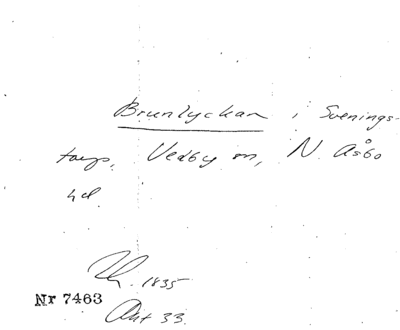 Brunlyckan i Svenings-
torp, Vedby sn, N. Åsbo
hd.
1835
Nr 7463
Akt 33